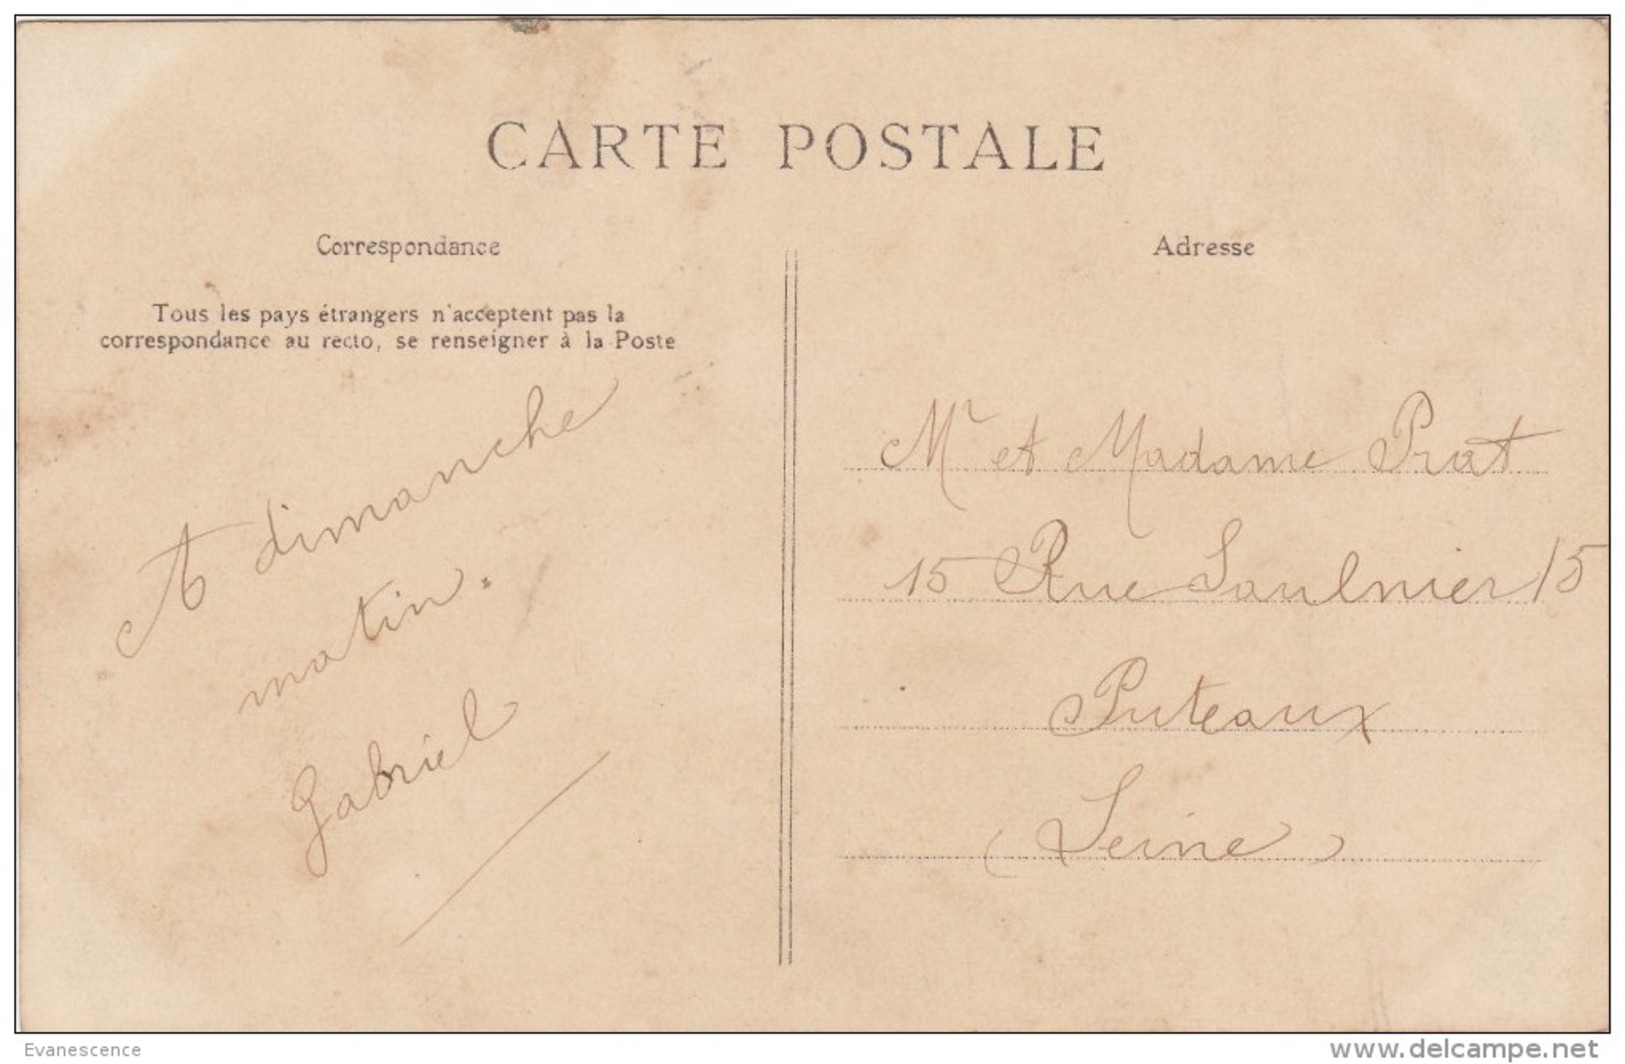 CARTE POSTALE
Correspondance
Tous les pays étrangers n'acceptent pas la
correspondance au recto, se renseigner à la Poste
A dimanche
matin.
Gabriel
Adresse
Mr et Madame Prat
15 Rue Saulnier 15
Puteaux
(Seine)
Evanescence
www.delcampe.net